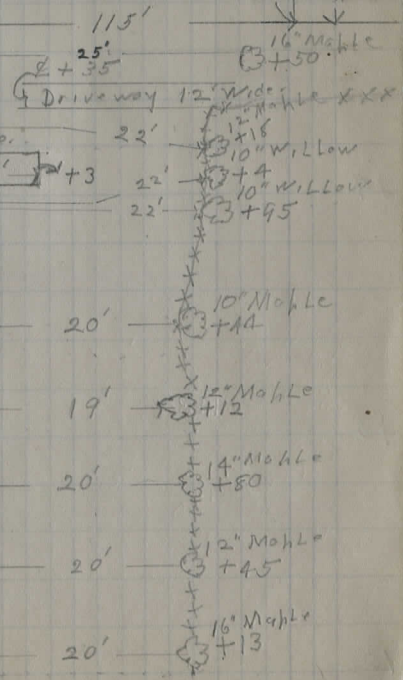 115'
16" Maple
25'
℄ + 35
+50
Driveway 12' Wide
12" Maple
22'
+18
10" Willow
+3
22'
+4
10" Willow
22'
+95
10" Maple
20'
+44
12" Maple
19'
+12
14" Maple
20'
+80
12" Maple
20'
+45
16" Maple
20'
+13